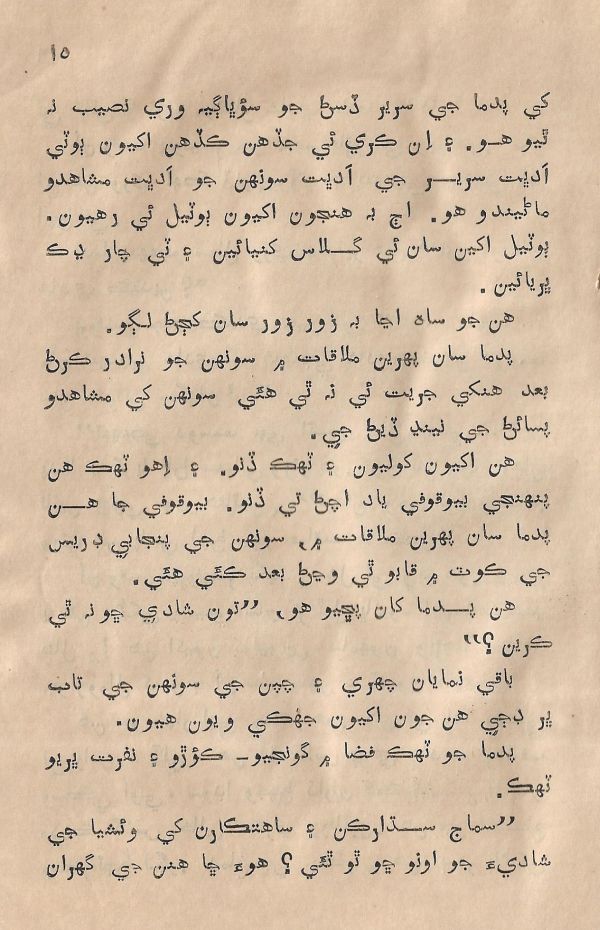 ١٥
کي پدما جي سرير ڏسڻ جو سؤڀاڳيہ وري نصيب نہ
ٿيو هو. ۽ اِن ڪري ئي جڏهن ڪڏهن اکيون ٻوٽي
اَدڀت سرير جي اَدڀت سونهن جو اَدڀت مشاهدو
ماڻيندو هو. اڄ بہ هنجون اکيون ٻوٽيل ئي رهيون.
ٻوٽيل اکين سان ئي گلاس کنيائين ۽ ٽي چار ڍڪ
ڀريائين.
هن جو ساہ اڃا بہ زور زور سان کڄڻ لڳو.
پدما سان پهرين ملاقات ۾ سونهن جو نرادر ڪرڻ
بعد هنکي جريت ئي نہ ٿي هئي سونهن کي مشاهدو
پسائڻ جي نينڊ ڏيڻ جي.
هن اکيون کوليون ۽ ٽهڪ ڏنو. ۽ اِهو ٽهڪ هن
پنهنجي بيوقوفي ياد اچڻ تي ڏنو. بيوقوفي جا هن
پدما سان پهرين ملاقات ۾, سونهن جي پنجابي ڊريس
جي ڪوٽ ۾ قابو ٿي وڃڻ بعد ڪئي هئي.
هن پدما کان پڇيو هو, ”تون شادي ڇو نہ ٿي
ڪرين؟“
باقي نمايان چهري ۽ چپن جي سونهن جي تاب
۾ ڊڄي هن جون اکيون جهڪي ويون هيون.
پدما جو ٽهڪ فضا ۾ گونجيو- ڪؤڙو ۽ نفرت ڀريو
ٽهڪ.
”سماج سڌارڪن ۽ ساهتڪارن کي وئشيا جي
شاديءَ جو اونو ڇو ٿو ٿئي؟ هوءَ ڇا هنن جي گهران